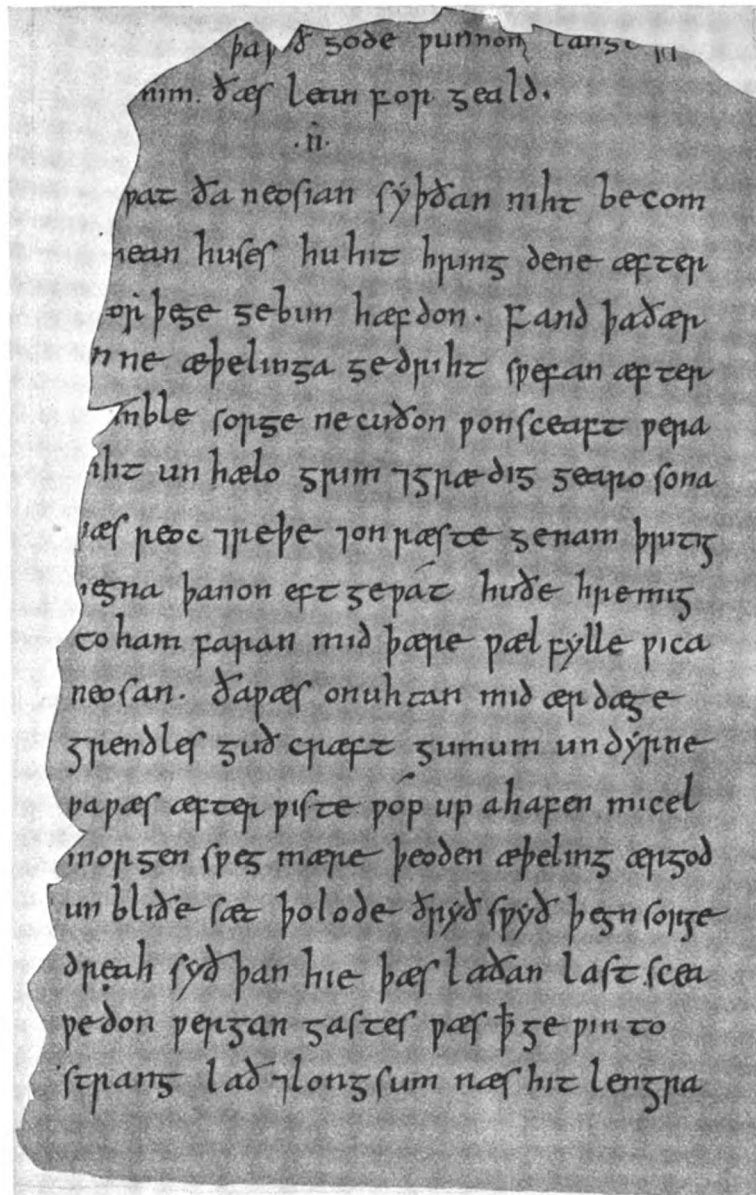 þa ƿið gode ƿunnon lange
him ðæs lean for geald.
.II.
ƿat ða neosian syþðan niht be com
hean huses hu hit hring dene æfter
eor þege ge bun hæfdon. Fand þa ðær
nne æþelinga ge driht sƿefan æfter
mble sorge ne cuðon ƿonsceaft ƿera
iht un hælo grim ⁊ grædig gearo sona
ƿæs reoc ⁊ reþe ⁊ on ræste ge nam þritig
egna þanon eft ge ƿát huðe hremig
to ham faran mid þære ƿæl fylle ƿica
neosan. ða ƿæs on uhtan mid ær dæge
grendles guð cræft gumum un dyrne
þa ƿæs æfter ƿiste ƿóp up ahafen micel
morgen sƿeg mære þeoden æþeling ærgod
un bliðe sæt þolode ðryð sƿyð þegn sorge
dreah syð þan hie þæs laðan last scea
ƿedon ƿergan gastes ƿæs ꝥ ge ƿin to
strang lað ⁊ long sum næs hit lengra